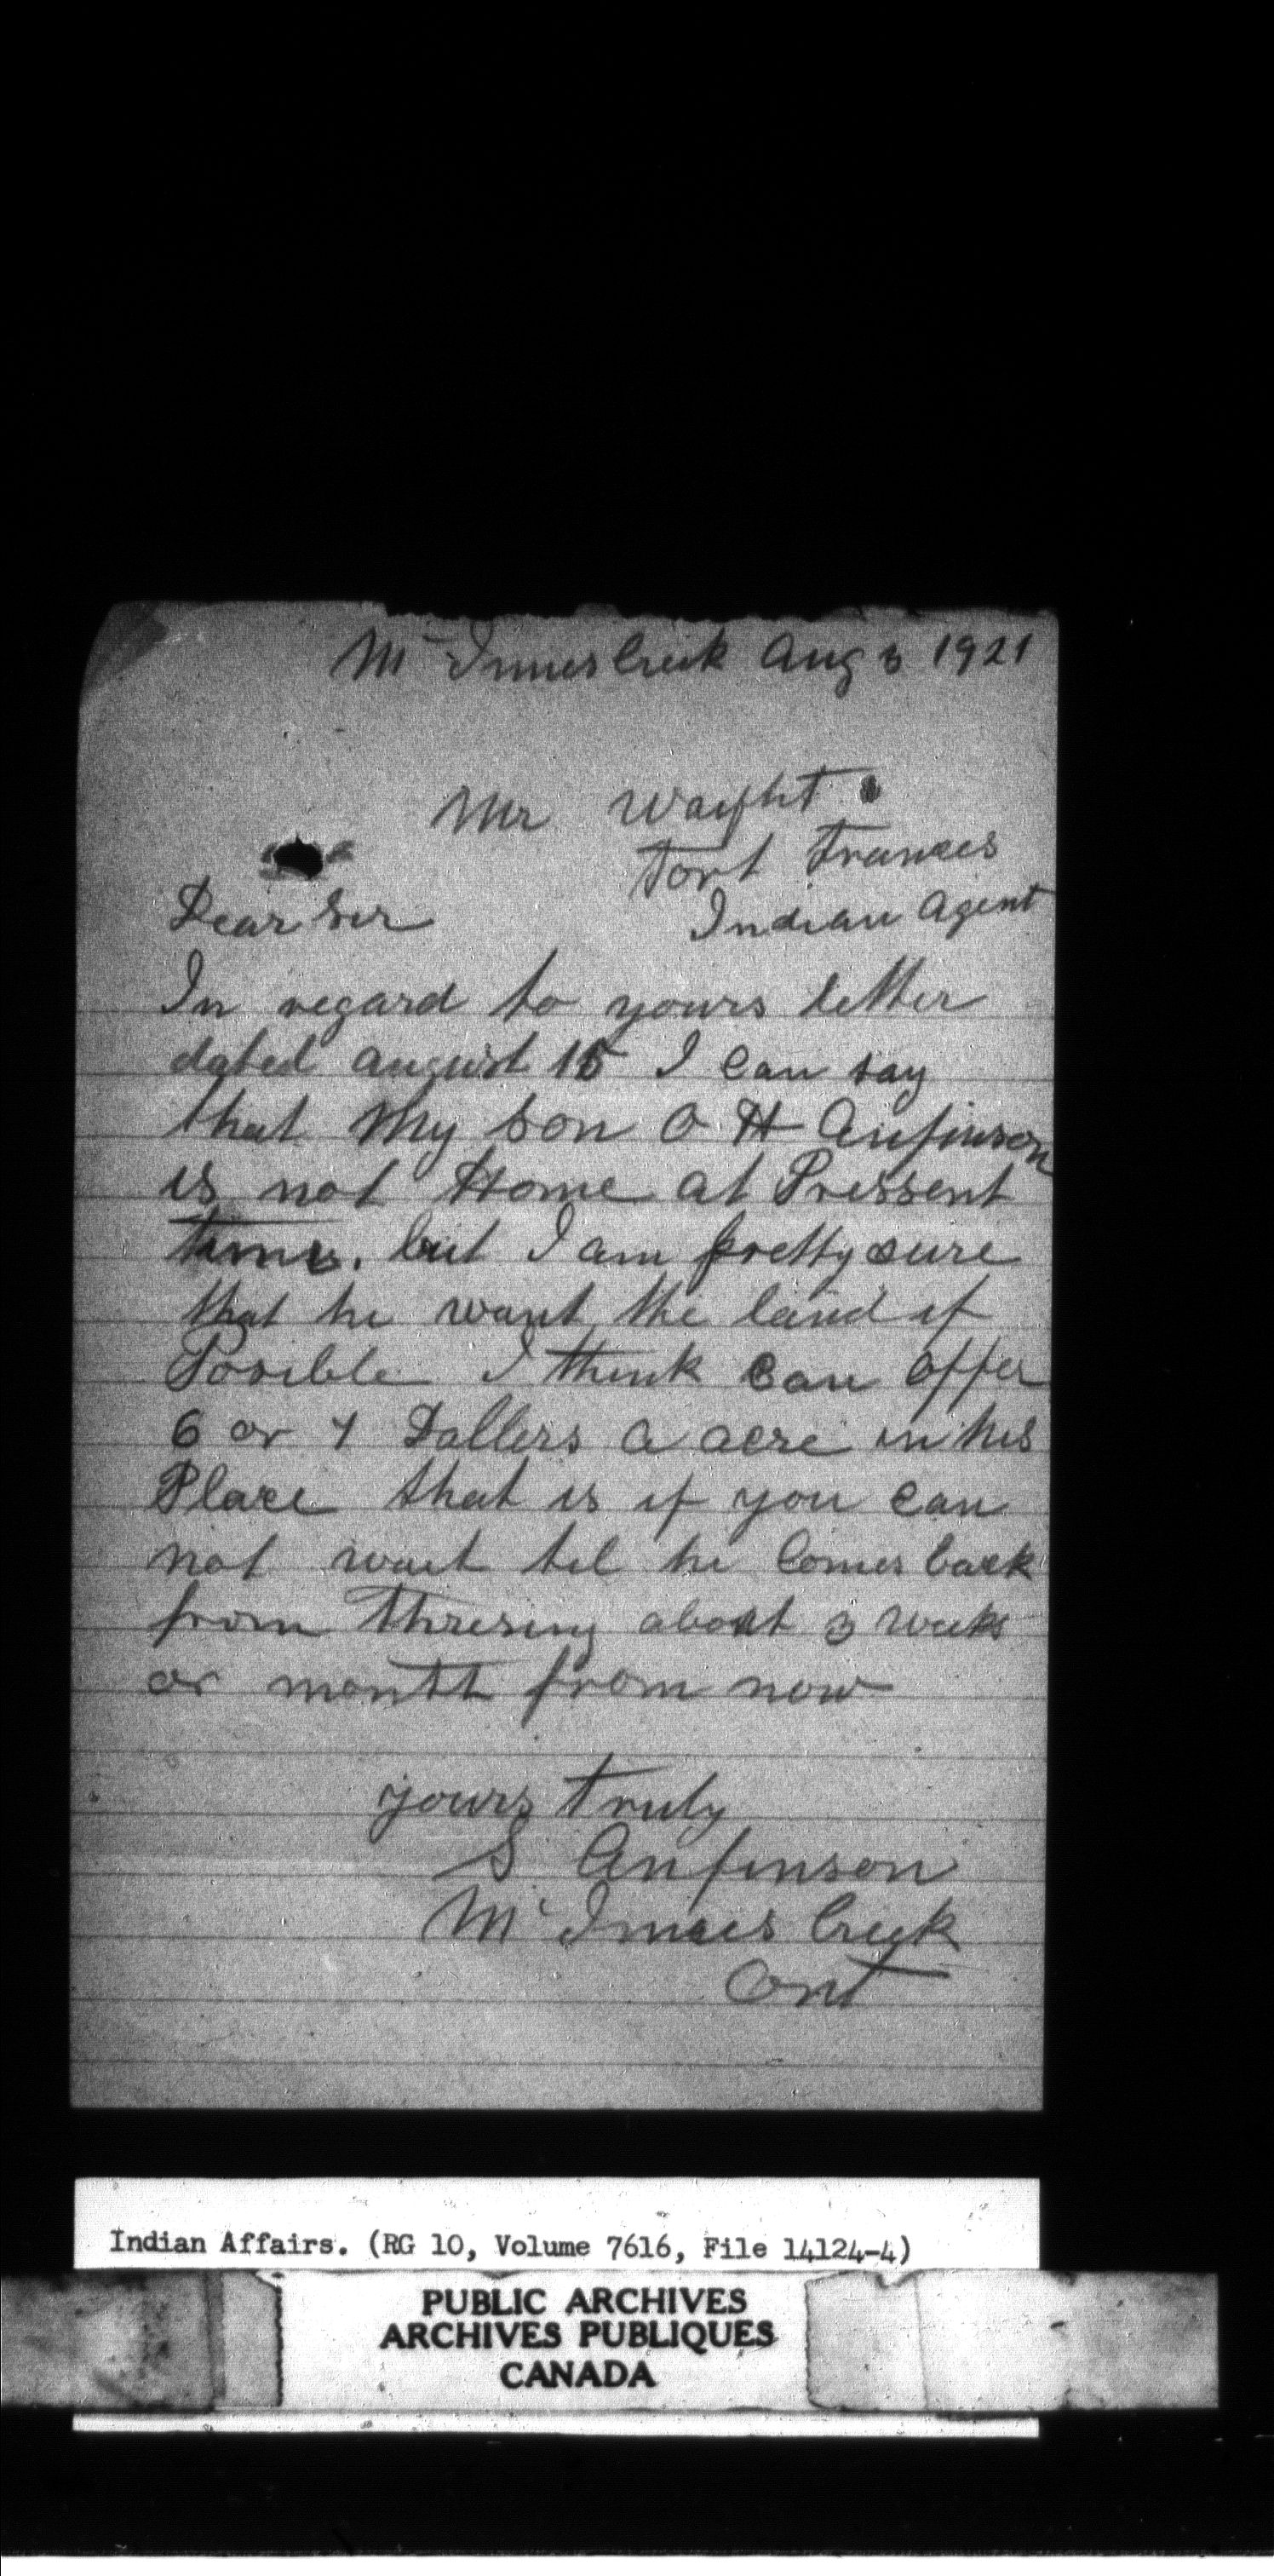 Mc Innes Creek Aug 3 1921
Mr Waight
Fort Frances
Dear Sir Indian Agent
In regard to yours letter
dated august 15 I Can say
that My son O H Anfinson
is not Home at Pressent
time. but I am pretty sure
that he want the land if
Posible I think Can offer
6 or 7 Dallers a acre in his
Place that is if you can
not wait tel he Comes back
from Thresing about 3 weeks
or month from now
yours Truly
S Anfinson
Mc Innes Creek
Ont
Indian Affairs. (RG 10, Volume 7616, File 14124-4)
PUBLIC ARCHIVES
ARCHIVES PUBLIQUES
CANADA